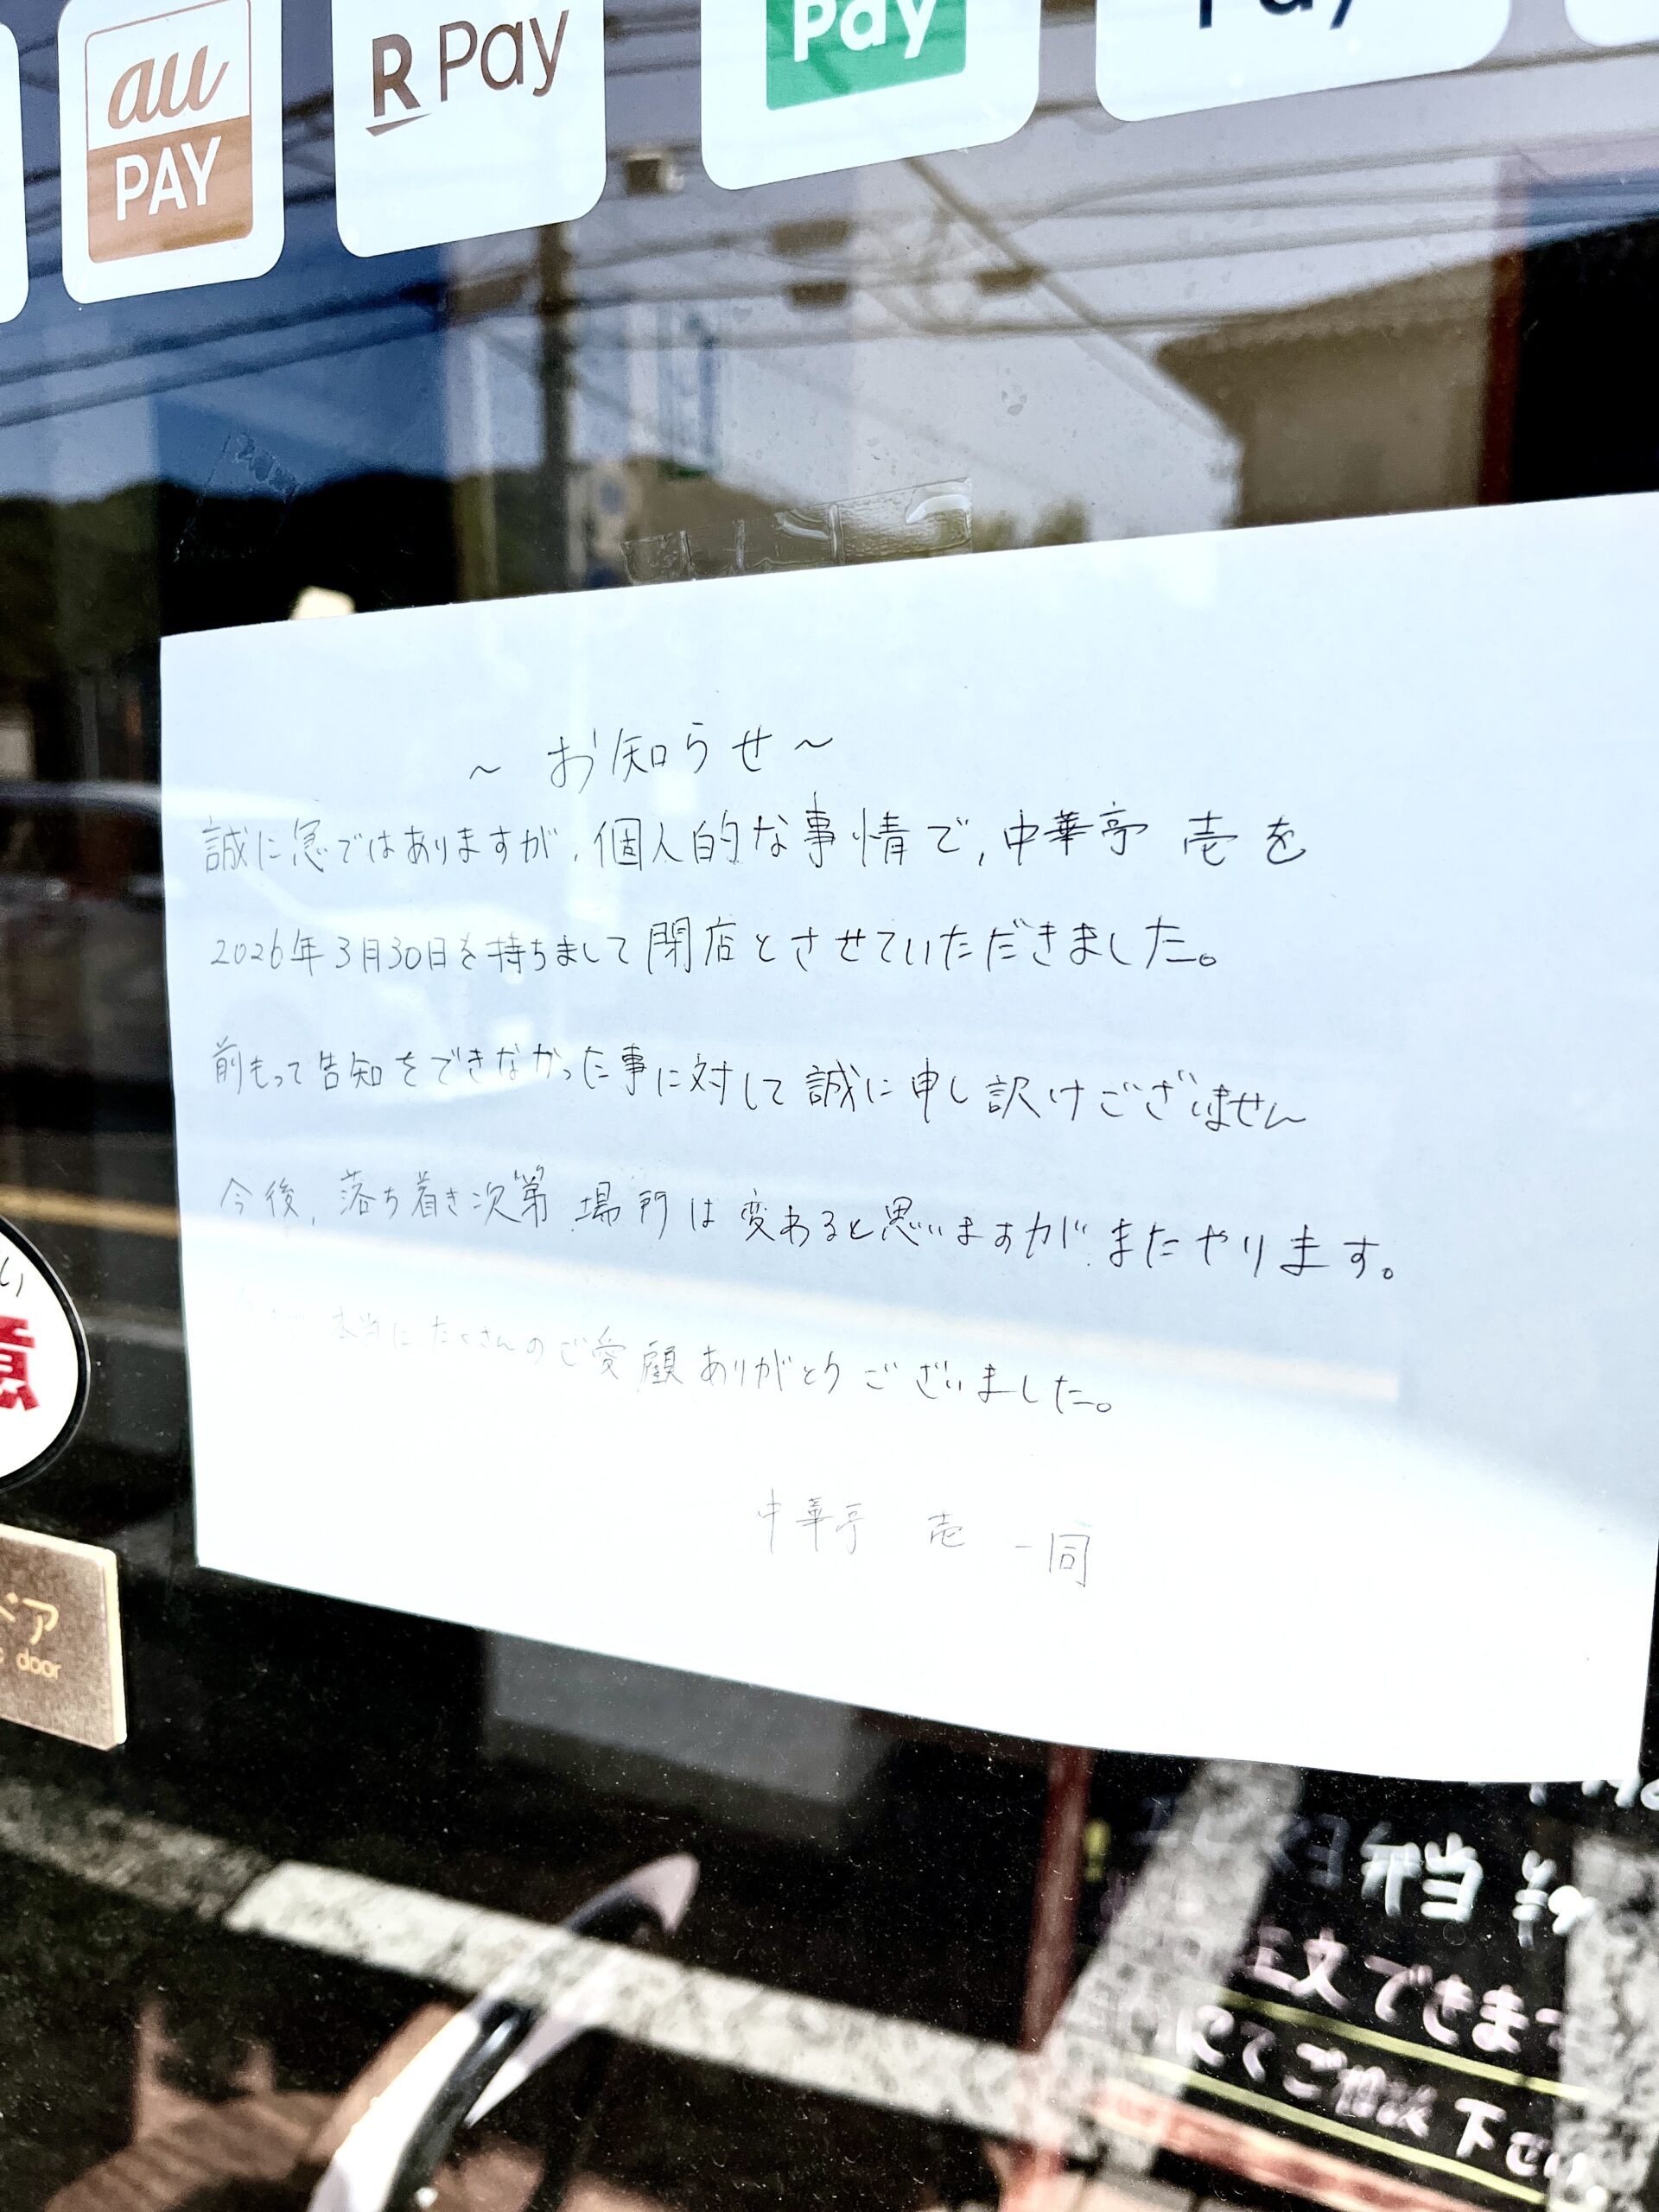 au
PAY
R Pay
Pay
Pay
～お知らせ～
誠に急ではありますが、個人的な事情で、中華亭 壱を
2026年3月30日を持ちまして閉店とさせていただきました。
前もって告知をできなかった事に対して誠に申し訳けございません
今後、落ち着き次第 場所は変わると思いますが、またやります。
本当にたくさんのご愛顧ありがとうございました。
中華亭 壱 一同
ドア
door
弁当
文でできます
てご相談下さい